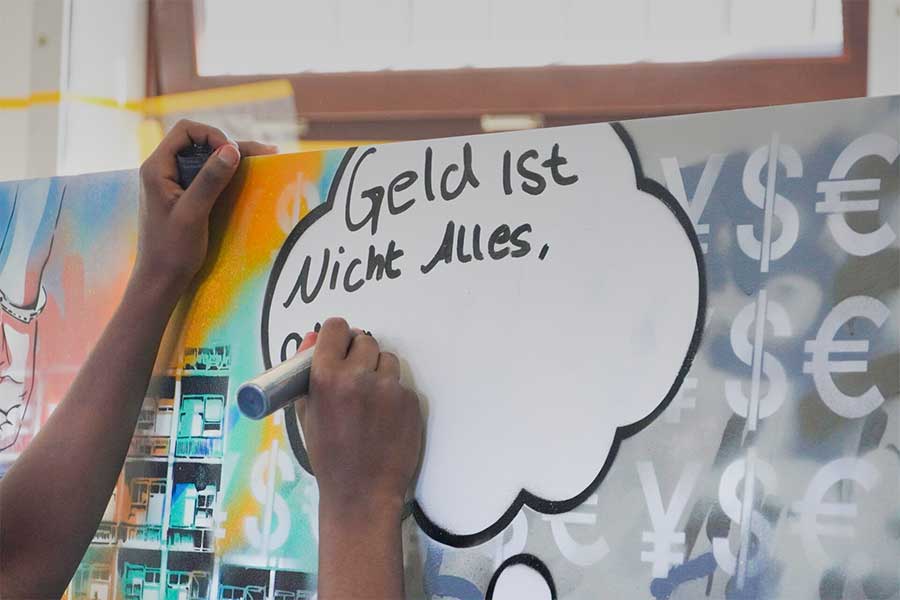 Geld ist
Nicht Alles,
¥ $ €
$ €
$
$ €
$ € ¥ $ €